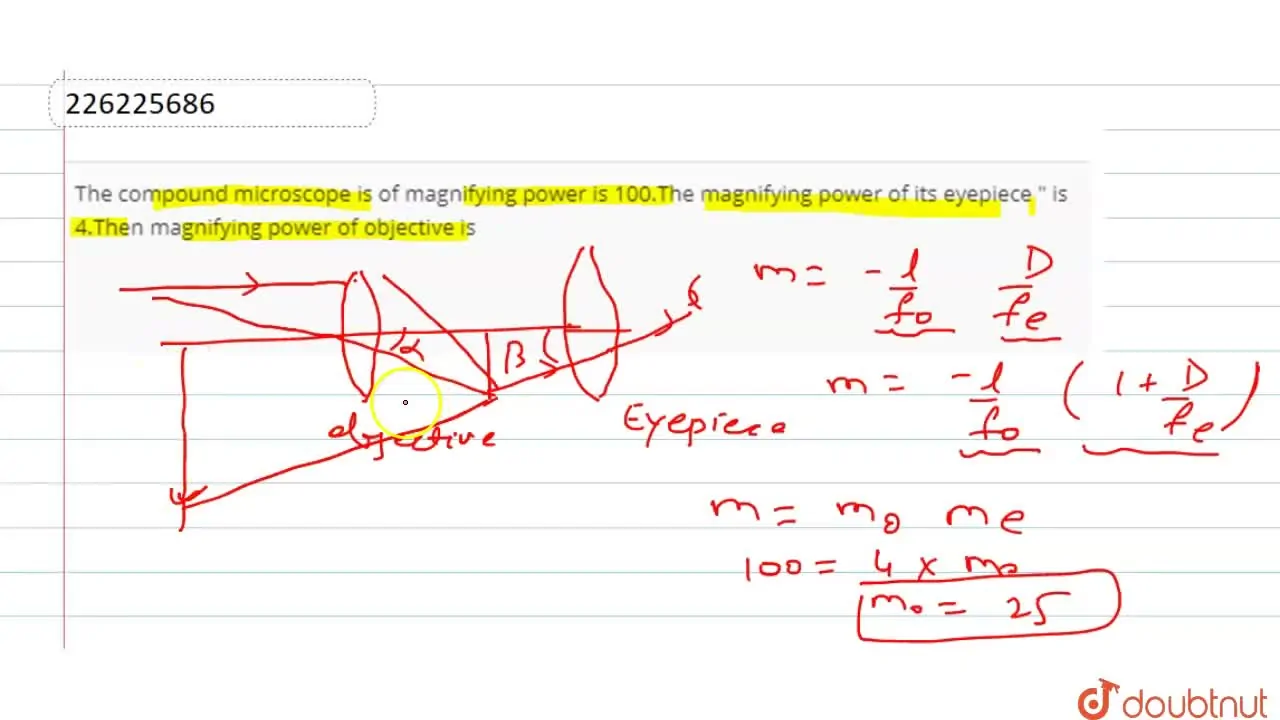 226225686
The compound microscope is of magnifying power is 100.The magnifying power of its eyepiece " is
4.Then magnifying power of objective is
m = -l/fo D/fe
α
β
m = -l/fo (1 + D/fe)
objective
Eyepiece
m = mo me
100 = 4 x mo
mo = 25
doubtnut